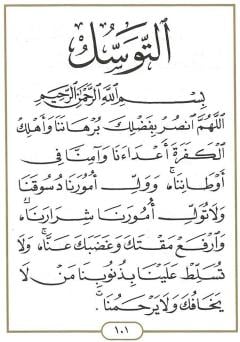 التَّوَسُّل
بِسْمِ اللَّهِ الرَّحْمَنِ الرَّحِيمِ
اللَّهُمَّ انْصُرْ بِفَضْلِكَ بُرْهَانَنَا وَأَهْلِكِ
الْكَفَرَةَ أَعْدَاءَنَا وَآمِنَّا فِي
أَوْطَانِنَا، وَوَلِّ أُمُورَنَا دُسُوقَنَا
وَلَا تُوَلِّ أُمُورَنَا شِرَارَنَا،
وَارْفَعْ مَقْتَكَ وَغَضَبَكَ عَنَّا، وَلَا
تُسَلِّطْ عَلَيْنَا بِذُنُوبِنَا مَنْ لَا
يَخَافُكَ وَلَا يَرْحَمُنَا
١٠١